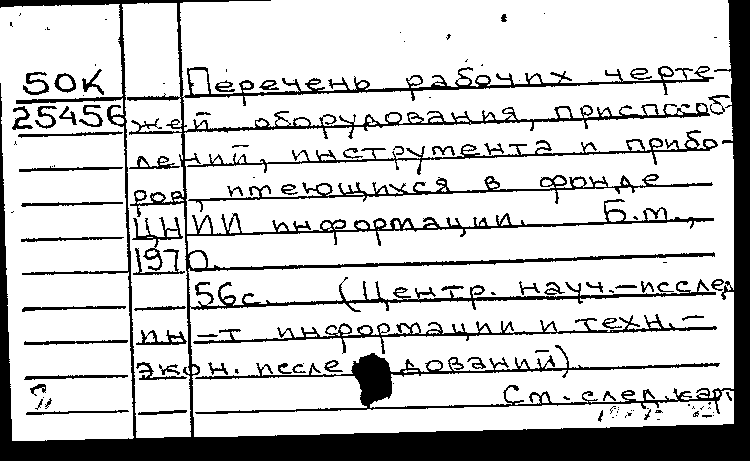 50К
25456
Перечень рабочих черте-
жей оборудования, приспособ-
лений, инструмента и прибо-
ров, имеющихся в фонде
ЦНИИ информации. Б.м.,
1970.
56с. (Центр. науч.-исслед
ин-т информации и техн.-
экон. иссле дований).
См. след. карт